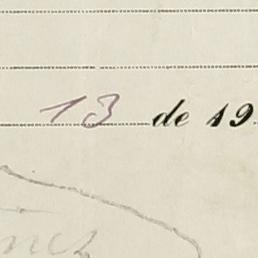 13 de 19